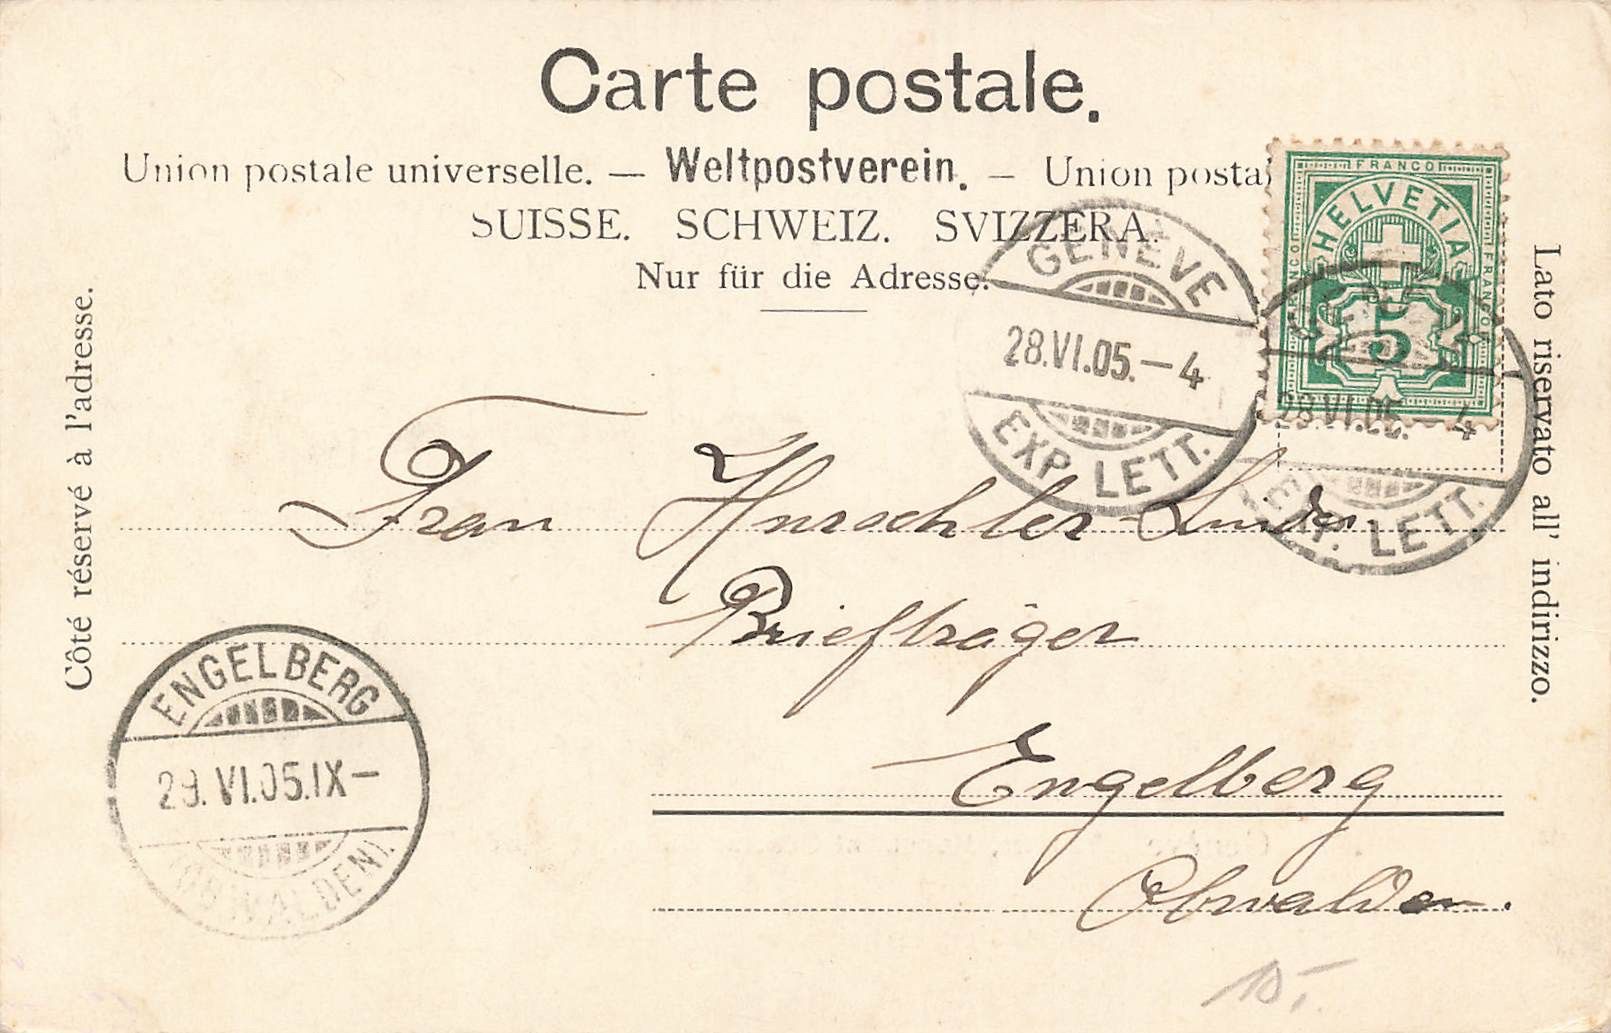 Carte postale.
Union postale universelle. — Weltpostverein. — Union posta
SUISSE. SCHWEIZ. SVIZZERA.
Nur für die Adresse.
Côté réservé à l'adresse.
Lato riservato all' indirizzo.
FRANCO
HELVETIA
FRANCO
FRANCO
5
GENÈVE
28.VI.05.–4
EXP. LETT.
28.VI.05. 4
EXP. LETT.
Frau Hurschler-
Briefträger
Engelberg
Obwalden.
ENGELBERG
29.VI.05.IX–
(OBWALDEN).
10.-